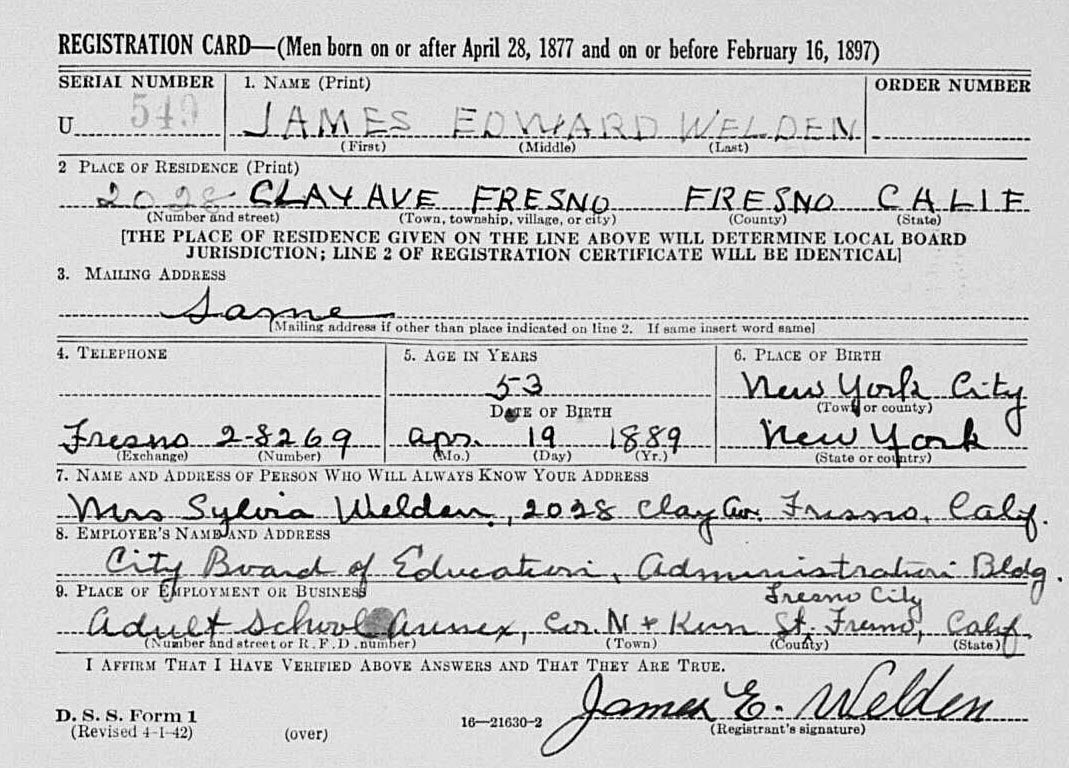 REGISTRATION CARD—(Men born on or after April 28, 1877 and on or before February 16, 1897)
SERIAL NUMBER 1. NAME (Print) ORDER NUMBER
U 549 JAMES EDWARD WELDEN
(First) (Middle) (Last)
2 PLACE OF RESIDENCE (Print)
2028 CLAY AVE FRESNO FRESNO CALIF
(Number and street) (Town, township, village, or city) (County) (State)
[THE PLACE OF RESIDENCE GIVEN ON THE LINE ABOVE WILL DETERMINE LOCAL BOARD
JURISDICTION; LINE 2 OF REGISTRATION CERTIFICATE WILL BE IDENTICAL]
3. MAILING ADDRESS
Same
[Mailing address if other than place indicated on line 2. If same insert word same]
4. TELEPHONE 5. AGE IN YEARS 6. PLACE OF BIRTH
53 New York City
DATE OF BIRTH (Town or county)
Fresno 2-8269 Apr. 19 1889 New York
(Exchange) (Number) (Mo.) (Day) (Yr.) (State or country)
7. NAME AND ADDRESS OF PERSON WHO WILL ALWAYS KNOW YOUR ADDRESS
Mrs Sylvia Welden, 2028 Clay Av. Fresno, Calif.
8. EMPLOYER'S NAME AND ADDRESS
City Board of Education, Administration Bldg.
9. PLACE OF EMPLOYMENT OR BUSINESS Fresno City
Adult School Annex, Cor. N + Kern St. Fresno, Calif.
(Number and street or R. F. D. number) (Town) (County) (State)
I AFFIRM THAT I HAVE VERIFIED ABOVE ANSWERS AND THAT THEY ARE TRUE.
James E. Welden
D. S. S. Form 1 16—21630-2 (Registrant's signature)
(Revised 4-1-42) (over)